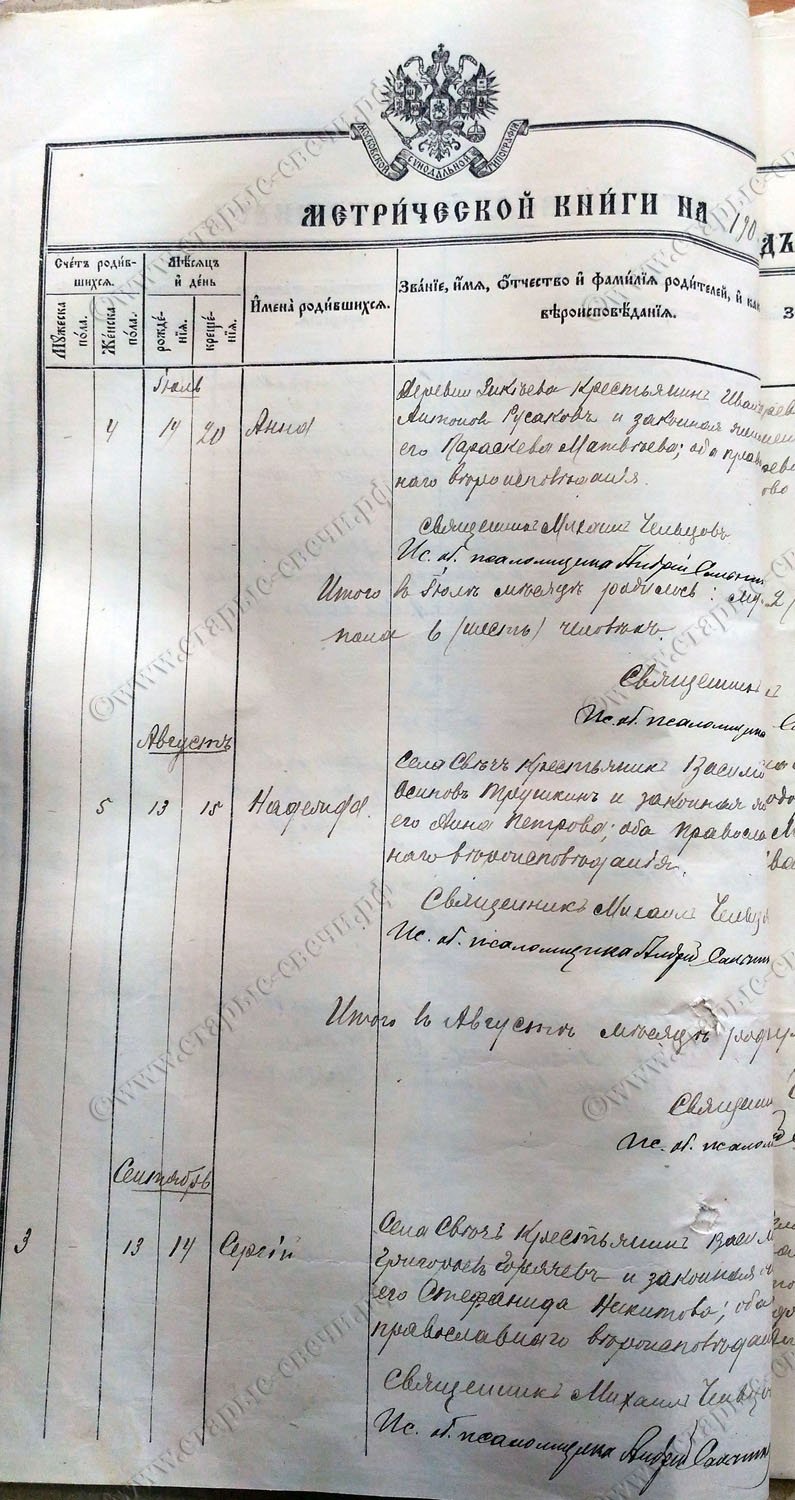 МОСКОВСКОЙ СѴНОДАЛЬНОЙ ТИПОГРАФІИ
МЕТРИ́ЧЕСКОЙ КНИ́ГИ НА 190
ДЪ
Сче́тъ роди́в-
шихся.
Мѣ́сяцъ
и де́нь
Му́жеска
по́ла.
Же́нска
по́ла.
рожде́-
нія.
креще́-
нія.
Имена̀ роди́вшихся.
Зва́ніе, и́мя, о́тчество и фами́лія роди́телей, и как
вѣроисповѣ́данія.
Іюль
- 4 14 20 Анна
Деревни Крестьянинъ Иван
Антоновъ Русаковъ и законная
его Параскева Матвѣева; оба прав
наго вѣроисповѣданія.
Священникъ Михаилъ Чельцовъ
Ис. об. псаломщика Андрей
Итого въ Іюлѣ мѣсяцѣ родилось:
пола 6 (шесть) человѣкъ.
Священник
Ис. об. псаломщика
Августъ
5 13 15
Села Свѣчъ Крестьянинъ Васил
Осиповъ Трушкинъ и законная
его Анна Петрова; оба правосла
наго вѣроисповѣданія.
Священникъ Михаилъ Чельцо
Ис. об. псаломщика Андрей
Итого въ Августѣ мѣсяцѣ
Священни
Ис. об. псалом
Сентябрь
3 - 13 14 Сергій
Села Свѣчъ Крестьянинъ Васил
Григорьевъ Горячевъ и законная
его Стефанида Никитова; оба
православнаго вѣроисповѣдан
Священникъ Михаилъ Чельцо
Ис. об. псаломщика Андрей
©www.старыс-свечи.рф